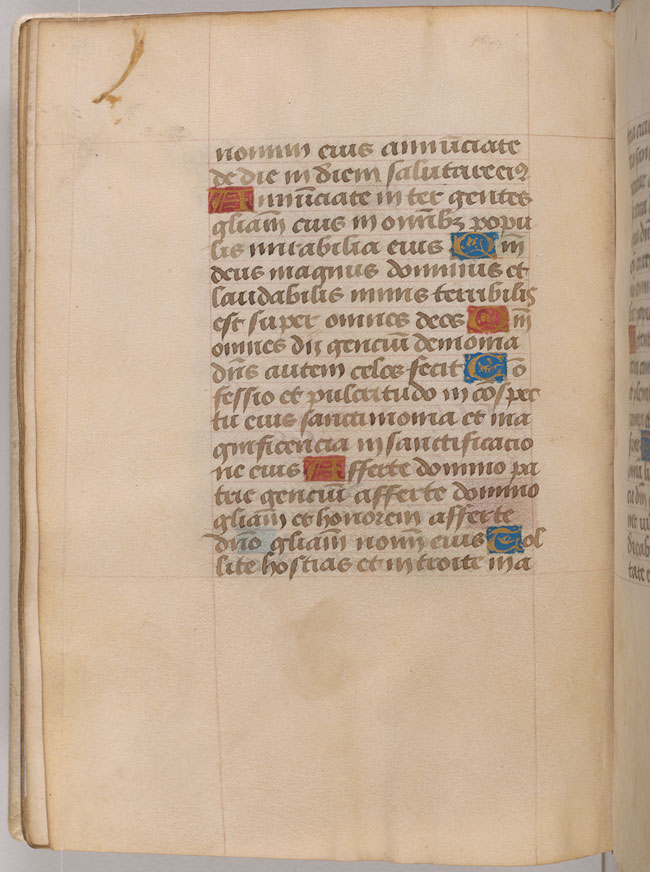 nomini eius annūciate
de die in diem salutare eiꝰ
Annūciate inter gentes
gliam̄ eius in omnibꝫ popu
lis mirabilia eius Qm̄
deus magnus dominus et
laudabilis nimis terribilis
est super omnes deos Qm̄
omnes dij genciū demonia
dn̄s autem celos fecit Cō
fessio et pulcritudo in cōspec
tu eius sanctimonia et ma
gnificencia in sanctificacio
ne eius Afferte domino pa
trie genciū afferte domino
gliam̄ et honorem afferte
dn̄o gliam̄ nomī eius Tol
lite hostias et introite in a